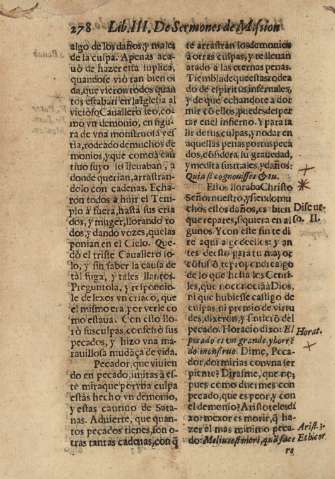 278 Lib. III. De Sermones de Mission
algo de los daños, y males
de la culpa. Apenas aca-
uò de hazer esta suplica,
quando se viò tan bien oi-
da, que vieron todos quan
tos estaban en la Iglesia al
vicioso Cauallero feo, co-
mo vn demonio, en figu-
ra de vna monstruosa ves-
tia, rodeado de muchos de-
monios, y que como à cau
tiuo suyo lo lleuaban, a
donde querian, arrastran-
dolo con cadenas. Echa-
ron todos à huir el Tem-
plo à fuera, hasta sus cria
dos, y muger, llorando to
dos, y dando vozes, que las
ponian en el Cielo. Que-
dò el triste Cauallero so-
lo, y sin saber la causa de
tal fuga, y tales llantos.
Preguntola, y respondio-
le de lexos vn criado, que
el mismo era, por verle co
mo estaua. Con esto llo-
rò sus culpas, confessò sus
pecados, y hizo vna ma-
rauillosa mudãça de vida.
Pecador, que viuien
do en pecado, imitas à es-
te mira que por tu culpa
estàs hecho vn demonio,
y estas cautiuo de Sata-
nas. Aduierte, que quan-
tos pecados tienes, son o-
tras tantas cadenas, con q̃
te arrastran los demonios
à otras culpas, y te lleuan
atado à las eternas penas.
Tiembla de que estas rodea
do de espiritus infernales,
y de que echandote a dor
mir cõ ellos, puedes desper
tar en el infierno. Y para sa
lir de tus culpas, y no dar en
aquellas penas por tus peca
dos, cõsidera su grauedad,
y medita sus males, y daños:
Quia si cognouisses & tu.
Estos lloraba Christo
Señor nuestro, y siendo mu
chos, estos daños, es bien
que repares, siquiera en al
gunos Y con este fin te di
re aqui
antes desto para tu mayor
de lo que hasta los Genti-
les, que no conociã à Dios,
ni que hubiesse castigo de
culpas, ni premio de virtu
des, dixeron, y sintiò del
pecado. Horacio dixo: El
pecado es vn grande, y horrẽ
do monstruo. Dime, Peca-
dor, dormirias con vna ser
piente? Dirasme, que no,
pues como duermes con
pecado, que es peor, y con
el demonio? Aristoteles di
xo: mexor es morir, q̃ ha-
zer el mas minimo peca-
do: Melius est mori, quã face
re
Discur
so. II.
Horat.
Arist. 3.
Ethicor.